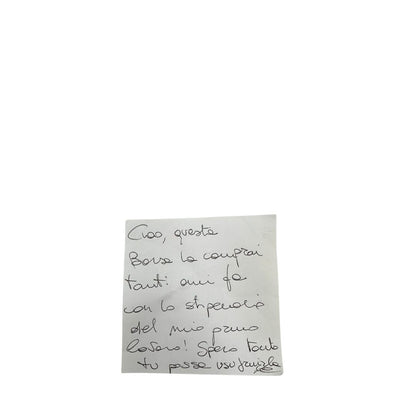 Ciao, questa
Borsa la comprai
tanti anni fa
con lo stipendio
del mio primo
lavoro! Spero tanto
tu possa usufruirla